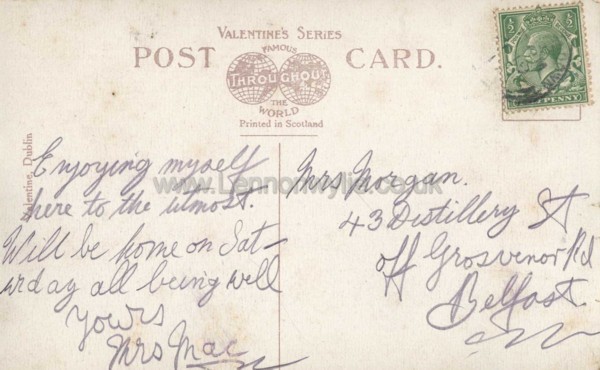 VALENTINE'S SERIES
POST CARD.
FAMOUS
THROUGHOUT
THE
WORLD
Printed in Scotland
Valentine, Dublin
Enjoying myself
here to the utmost.
Will be home on Sat-
urday all being well
Yours
Mrs Mac
Mrs Morgan.
43 Distillery St
off Grosvenor Rd
Belfast.
www.Lennonwylie.co.uk
½ ½